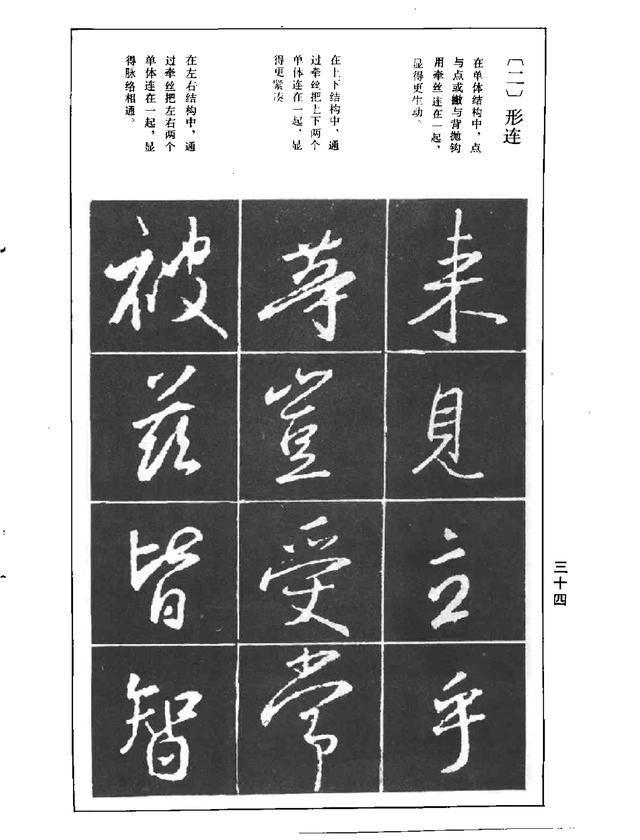 〔二〕形连
在单体结构中，点
与点或撇与背抛钩
用牵丝连在一起，
显得更生动。
在上下结构中，通
过牵丝把上下两个
单体连在一起，显
得更紧凑
在左右结构中，通
过牵丝把左右两个
单体连在一起，显
得脉络相通。
来
見
立
乎
等
豈
受
常
被
茲
皆
智
三十四